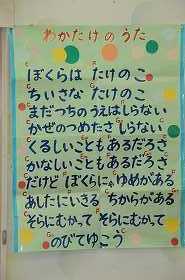 わかたけのうた
ぼくらは たけのこ
ちいさな たけのこ
まだつちのうえはしらない
かぜのつめたさ しらない
くるしいこともあるだろさ
かなしいこともあるだろさ
だけど ぼくらにゃ ゆめがある
あしたにいきる ちからがある
そらにむかって そらにむかって
のびてゆこう